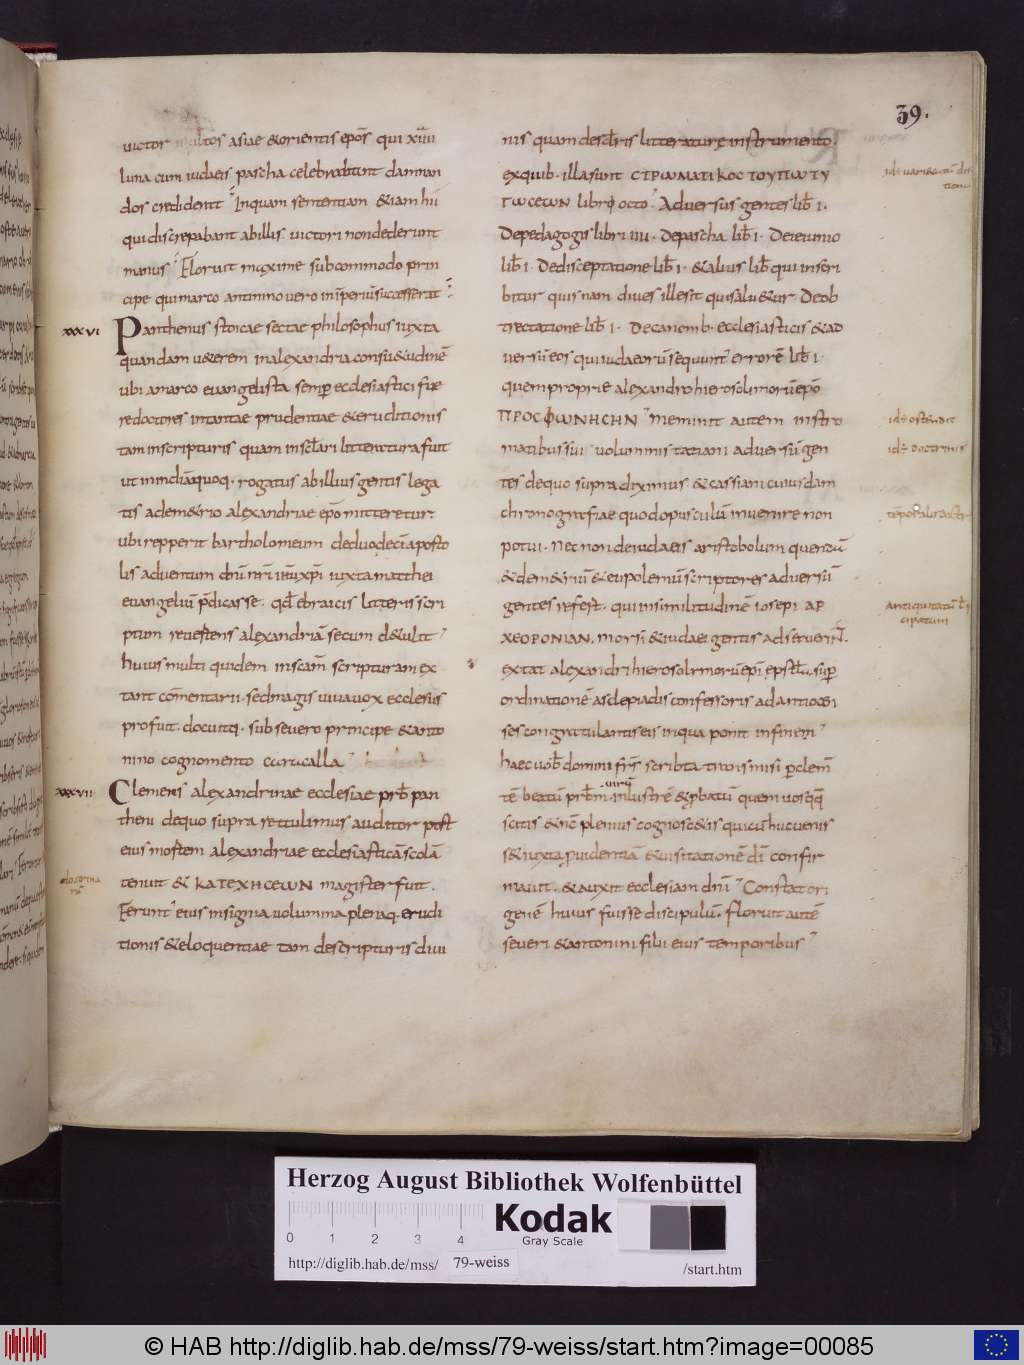 39.
victor multos asiae & orientis ep̄os qui xiiii
luna cum iudaeis pascha celebrabant damnan
dos credidert Inquam sententiam &iam hii
qui discrepabant abillis victori nondederunt
manus Floruit maxime subcommodo prin
cipe quimarco antinino vero inīperiū successerat
xxxvi
Panthenus stoicae sectae philosophus iuxta
quandam u&erem inalexandria consu&udinē
ubi amarco euangelista semp ecclesiastici fue
redoctores intantae prudentiae & eruditionis
tam inscripturis quam insclari litteratura fuit
ut inindiāquoq. rogatus abillius gentis lega
tis adem&rio alexandriae epo mitteretur
ubi repperit bartholomeum deduodeci aposto
lis aduentum dni nri ihuxpi iuxta matthei
euangeliū p̄dicasse. qd ebraicis litteris scri
ptum reuertens alexandriā secum d&ulit
huius multi quidem inscam scripturam ex
tant cōmentarii. sedmagis uiua uox ecclesiis
profuit. docuitq. sub seuero principe & anto
nino cognomento curucalla
xxxvii
Clemens alexandrinae ecclesiae prb pan
theni dequo supra rettulimus auditor post
eius mortem alexandriae ecclesiasticā scolā
tenuit & ΚΑΤΕΧΗCΕωΝ magister fuit.
Ferunt eius insignia uolumina plenaq. erudi
tionis & eloquentiae tam descripturis diui
nis quam desclris litterature instrumento.
exquib. illa sunt CΤΡωΜΑΤΙΚΟC ΤΟΥΠωΤΥ
ΓωCΕωΝ libri octo. Aduersus gentes lib i.
Depedagogis libri iiii. Depascha lib i. Deieiunio
lib i. Dedisceptatione lib i. & alius lib qui inscri
bitur quisnam diues ille sit qui salu&ur. Deob
trectatione lib i. Decanonib. ecclesiasticis & ad
uersū eos qui iudaeorū sequunt errorē lib i.
quem proprie alexandro hierosolimorū epō
ΠΡΟCΦωΝΗCΗΝ meminit autem instro
matibus sui uoluminis tatiani aduersū gen
tes dequo supra diximus & cassiani cuiusdam
chronografiae quod opusculū inuenire non
potui. Nec non deiudaeis aristobolum quendū
& dem&riū & eupolemū scriptores aduersū
gentes refert. qui insimilitudinē iosepi ΑΡ
ΧΕΟΡΟΝΙΑΝ, morsi & iudaei gentis adseruerīt.
extat alexandri hierosolimorū epi epstla sup
ordinationē asclepiadis confessoris ad antiochi
ses congratulantis eis inqua ponit infinem
haec uob domini frs scribta transmisi p clem
tē beatū prbm uirū inlustrē & p̄batū quem uosqq
scitis & nc plenius cognosc&is qui cū huc uenis
s& iuxta puidentiā & uisitationē di confir
mauit. & auxit ecclesiam dni Constat ori
genē huius fuisse discipulū. floruit autē
seueri & antonini filii eius temporibus
doctrina
id ostendit
id doctrinis
antiquitatū
Herzog August Bibliothek Wolfenbüttel
0 1 2 3 4
Kodak
Gray Scale
http://diglib.hab.de/mss/ 79-weiss /start.htm
© HAB http://diglib.hab.de/mss/79-weiss/start.htm?image=00085